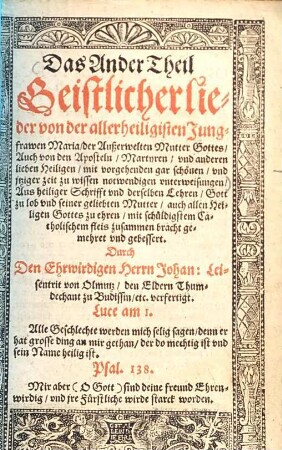 Das Ander Theil
Geistlicher lie-
der von der allerheiligisten Jung-
frawen Maria/der Außerwelten Mutter Gottes/
Auch von den Aposteln/Martyrern/vnd anderen
lieben Heiligen/mit vorgehenden gar schönen/vnd
jziger zeit zu wissen notwendigen vnterweisungen/
Aus heiliger Schrifft vnd derselben Lehren/Gott
zu lob vnd seiner geliebten Mutter/auch allen Hei-
ligen Gottes zu ehren/mit schüldigstem Ca-
tholischem fleis zusammen bracht ge-
mehret vnd gebessert.
Durch
Den Ehrwirdigen Herrn Johan: Lei-
sentrit von Olmutz/den Eldern Thum-
dechant zu Budissin/etc. verfertigt.
Luce am 1.
Alle Geschlechte werden mich selig sagen/denn er
hat grosse ding an mir gethan/der do mechtig ist vnd
sein Name heilig ist.
Psal. 138.
Mir aber (O Gott) sind deine freund Ehren-
wirdig/vnd jre Fürstliche wirde starck worden.